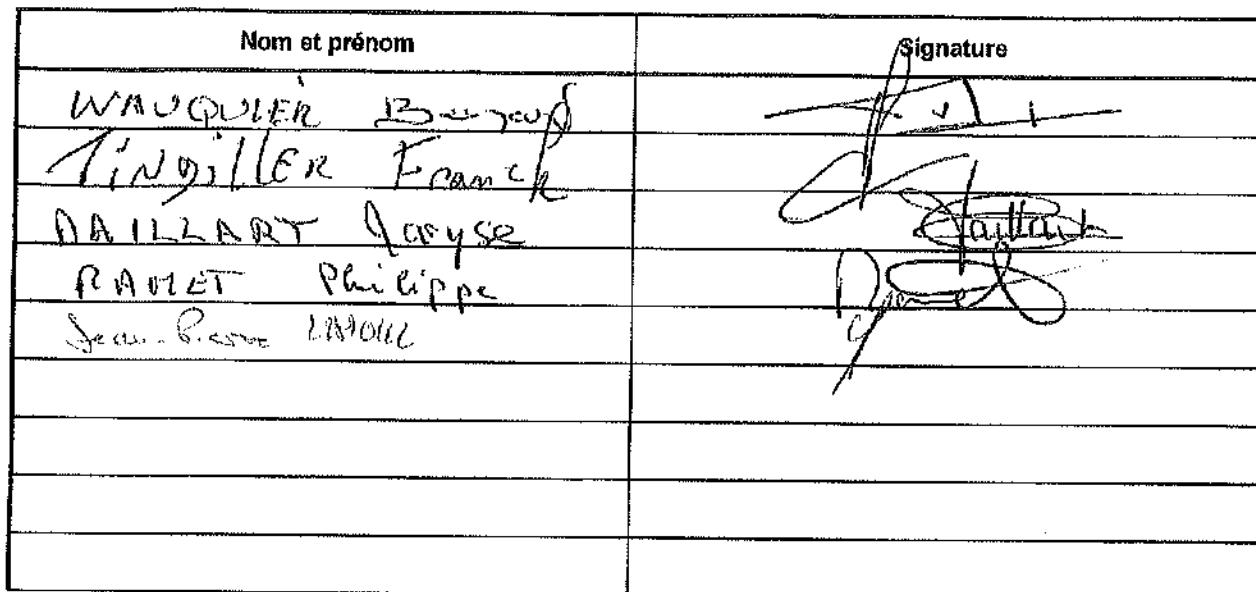 Nom et prénom Signature
WAUQUIER
TiNgillER Franck
MAILLART Maryse Maillart
RAMET Philippe
Jean-Pierre